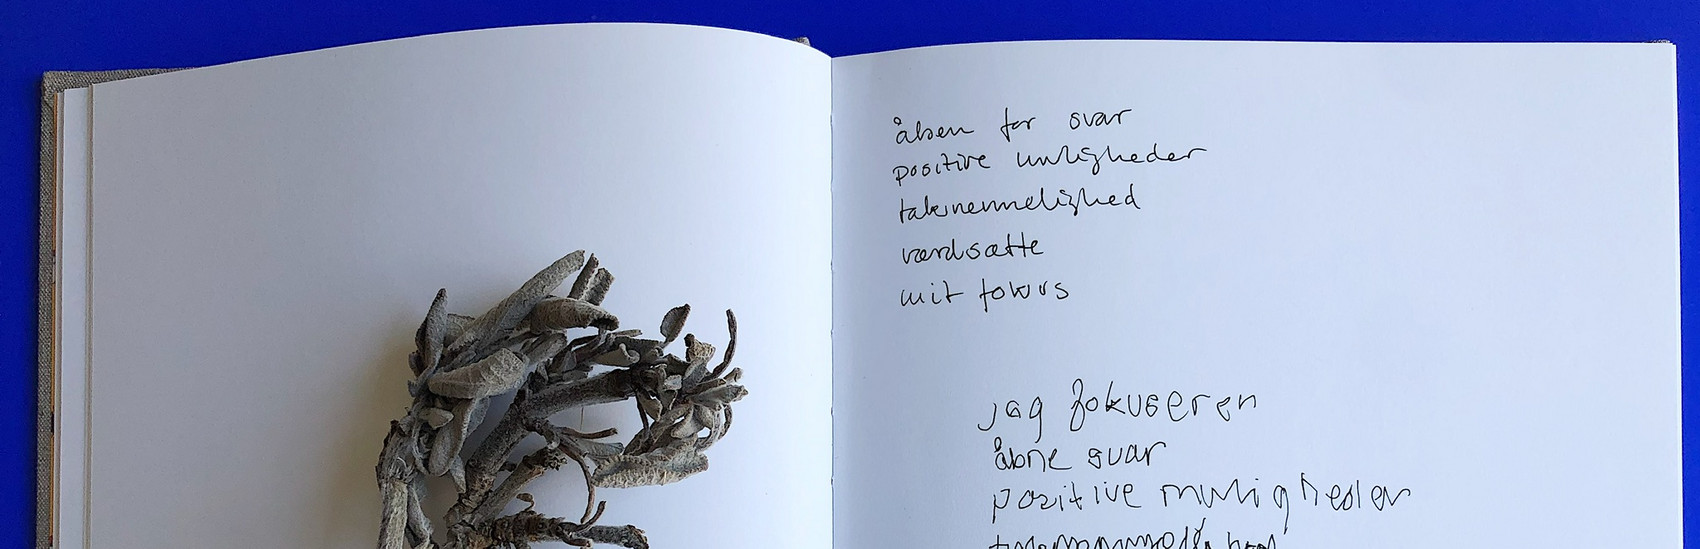 åben for svar
positive muligheder
taknemmelighed
værdsætte
mit fokus
jag fokuserer
åbne svar
positive muligheder